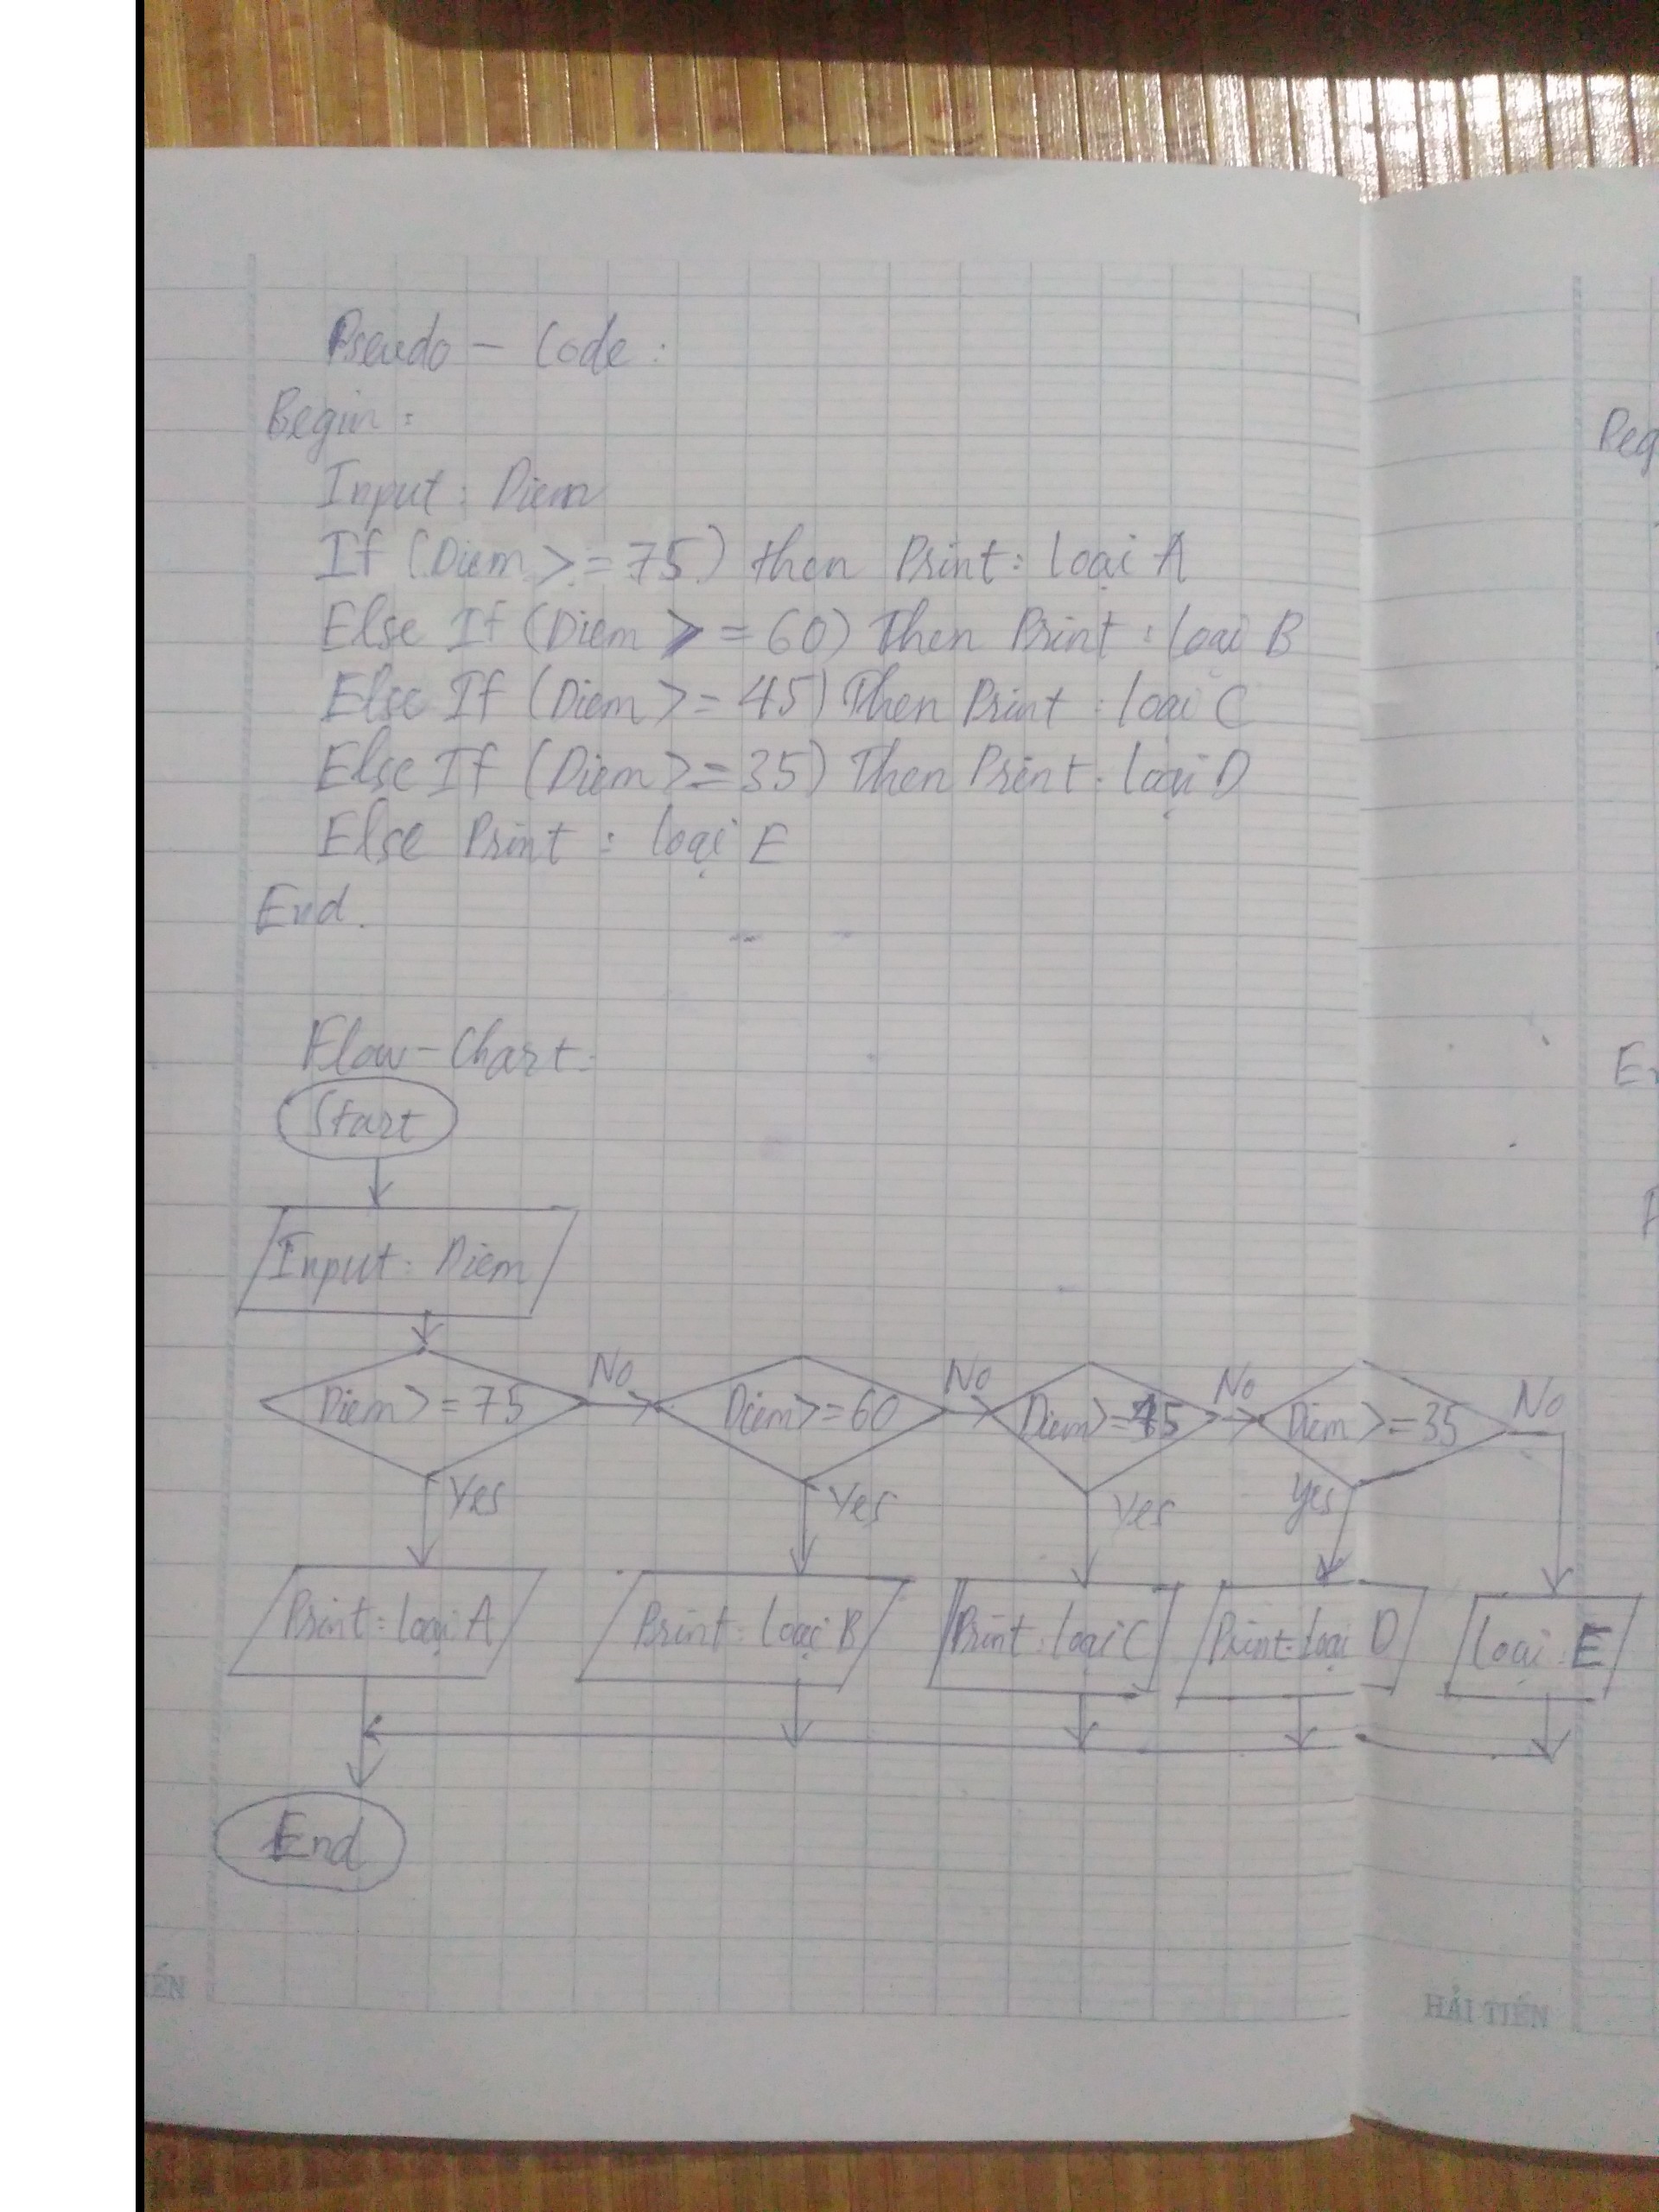 Pseudo - Code :
Begin :
Input : Diem
If (Diem >= 75) then Print : loại A
Else If (Diem >= 60) Then Print : loại B
Else If (Diem >= 45) Then Print : loại C
Else If (Diem >= 35) Then Print : loại D
Else Print : loại E
End.
Flow-Chart :
Start
Input : Diem
Diem >= 75 No Diem >= 60 No Diem >= 45 No Diem >= 35 No
Yes Yes Yes Yes
Print : loại A Print : loại B Print : loại C Print : loại D loại E
End
HẢI TIẾN